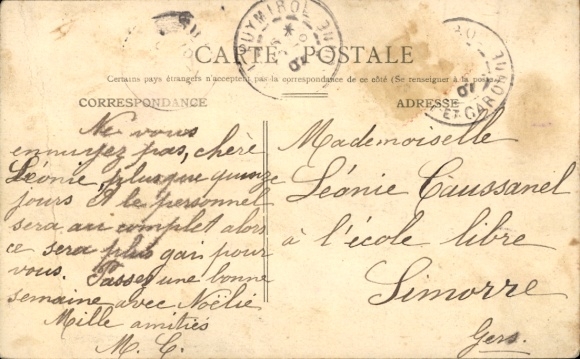 CARTE POSTALE
Certains pays étrangers n'acceptent pas la correspondance de ce côté (Se renseigner à la poste
CORRESPONDANCE
Ne vous
ennuyez pas, chère
Léonie, plus que quinze
jours et le personnel
sera au complet alors
ce sera plus gai pour
vous. Passez une bonne
semaine avec Noëlie
Mille amitiés
M. C.
ADRESSE
Mademoiselle
Léonie Caussanel
à l'école libre
Simorre
Gers.
PUYMIROL
ET GARONNE